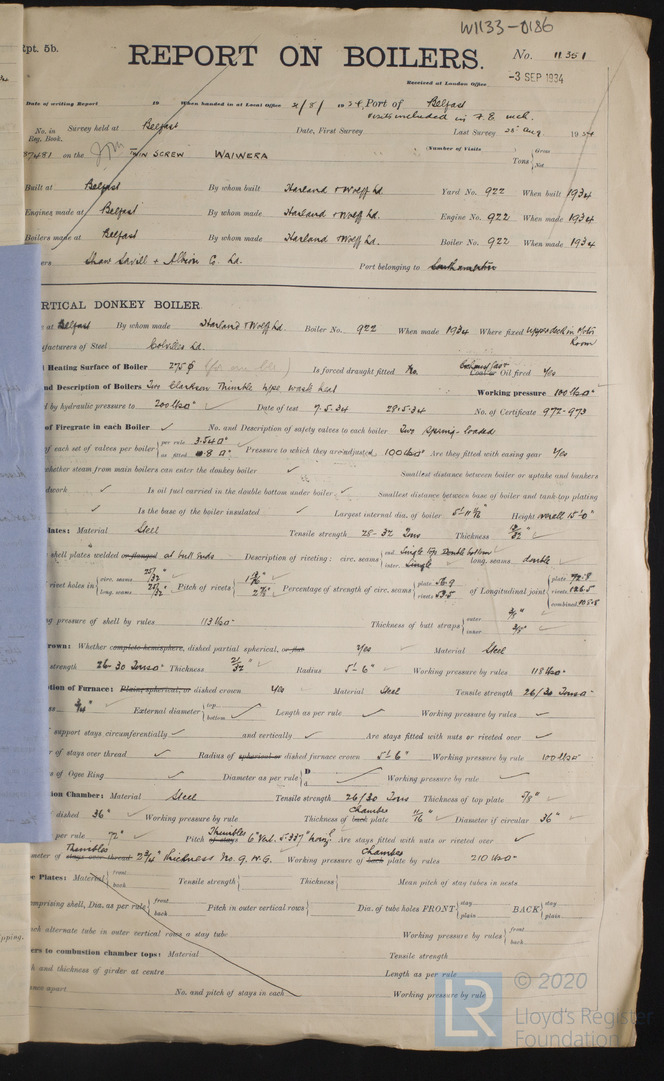 W1133-0186
Rpt. 5b.
REPORT ON BOILERS.
No. 11351
Received at London Office
-3 SEP 1934
Date of writing Report 19 When handed in at Local Office 2/9/ 1934 Port of Belfast
No. in Reg. Book. Survey held at Belfast Date, First Survey visits included in F.E. mch. Last Survey 28 Aug. 1934
87481 on the TWIN SCREW WAIWERA (Number of Visits Tons Gross Net
Built at Belfast By whom built Harland & Wolff Ld. Yard No. 922 When built 1934
Engines made at Belfast By whom made Harland & Wolff Ld. Engine No. 922 When made 1934
Boilers made at Belfast By whom made Harland & Wolff Ld. Boiler No. 922 When made 1934
ers Shaw Savill & Albion Co Ld. Port belonging to Southampton
RTICAL DONKEY BOILER.
at Belfast By whom made Harland & Wolff Ld. Boiler No. 922 When made 1934 Where fixed Upper deck in Motor Room
facturers of Steel Colvilles Ld.
Heating Surface of Boiler 275 Is forced draught fitted No. Coal or Oil fired Yes
nd Description of Boilers Two Clarkson Thimble type, waste heat Working pressure 100 lbs
d by hydraulic pressure to 200 lbs Date of test 7.5.34 28.5.34 No. of Certificate 972-973
of Firegrate in each Boiler ✓ No. and Description of safety valves to each boiler Two Spring-loaded
of each set of valves per boiler per rule 3.54 as fitted Pressure to which they are adjusted 100 lbs Are they fitted with easing gear Yes
whether steam from main boilers can enter the donkey boiler ✓ Smallest distance between boiler or uptake and bunkers
dwork ✓ Is oil fuel carried in the double bottom under boiler ✓ Smallest distance between base of boiler and tank-top plating
✓ Is the base of the boiler insulated ✓ Largest internal dia. of boiler 5'-11 Height overall 15'-0"
lates: Material Steel Tensile strength 28-32 Tons Thickness
shell plates welded or flanged at butt ends Description of riveting: circ. seams end Single lap Double bottom inter. Single long. seams double
rivet holes in circ. seams long. seams Pitch of rivets Percentage of strength of circ. seams plate 56.9 rivets 53.5 of Longitudinal joint plate rivets combined
g pressure of shell by rules 113 lbs Thickness of butt straps outer inner
rown: Whether complete hemisphere, dished partial spherical, or flat Yes Material Steel
strength 26-30 Tons Thickness Radius 5'-6" Working pressure by rules 118 lbs
ption of Furnace: Plain, spherical, or dished crown Yes Material Steel Tensile strength 26/30 Tons
External diameter top bottom Length as per rule Working pressure by rules
support stays circumferentially ✓ and vertically ✓ Are stays fitted with nuts or riveted over
r of stays over thread Radius of spherical or dished furnace crown 5'-6" Working pressure by rule 100 lbs
s of Ogee Ring Diameter as per rule D d Working pressure by rule
ion Chamber: Material Steel Tensile strength 26/30 Tons Thickness of top plate 5/8"
dished 36" Working pressure by rule Thickness of back Chamber plate 11/16" Diameter if circular 36"
per rule 72" Pitch of stays Thimbles 6" Vert. 5.337" horizl. Are stays fitted with nuts or riveted over
meter of stays over thread Thimbles Thickness No. 9. W.G. Working pressure of back Chamber plate by rules 210 lbs
e Plates: Material front back Tensile strength Thickness Mean pitch of stay tubes in nests
mprising shell, Dia. as per rule front back Pitch in outer vertical rows Dia. of tube holes FRONT stay plain BACK stay plain
ch alternate tube in outer vertical rows a stay tube Working pressure by rules front back
ers to combustion chamber tops: Material Tensile strength
h and thickness of girder at centre Length as per rule
ance apart No. and pitch of stays in each Working pressure by rule
pping.
LR
© 2020
Lloyd's Register
Foundation